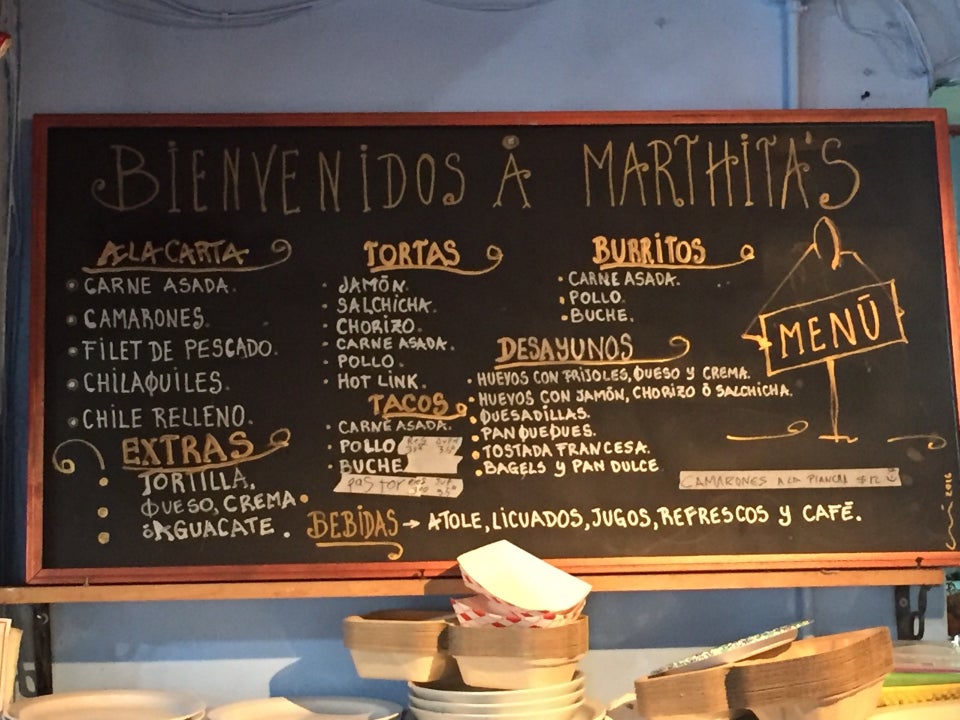 BIENVENIDOS A MARTHITA'S
A LA CARTA
• CARNE ASADA.
• CAMARONES.
• FILET DE PESCADO.
• CHILAQUILES.
• CHILE RELLENO.
EXTRAS
• TORTILLA.
• QUESO, CREMA
• ó AGUACATE.
TORTAS
• JAMÓN.
• SALCHICHA.
• CHORIZO.
• CARNE ASADA.
• POLLO.
• HOT LINK.
TACOS
• CARNE ASADA.
• POLLO
• BUCHE
pastor
BURRITOS
• CARNE ASADA.
• POLLO.
• BUCHE.
DESAYUNOS
• HUEVOS CON FRIJOLES, QUESO Y CREMA.
• HUEVOS CON JAMÓN, CHORIZO Ó SALCHICHA.
• QUESADILLAS.
• PANQUEQUES.
• TOSTADA FRANCESA.
• BAGELS Y PAN DULCE
MENÚ
CAMARONES A LA PLANCHA $12
BEBIDAS → ATOLE, LICUADOS, JUGOS, REFRESCOS Y CAFÉ.
2016